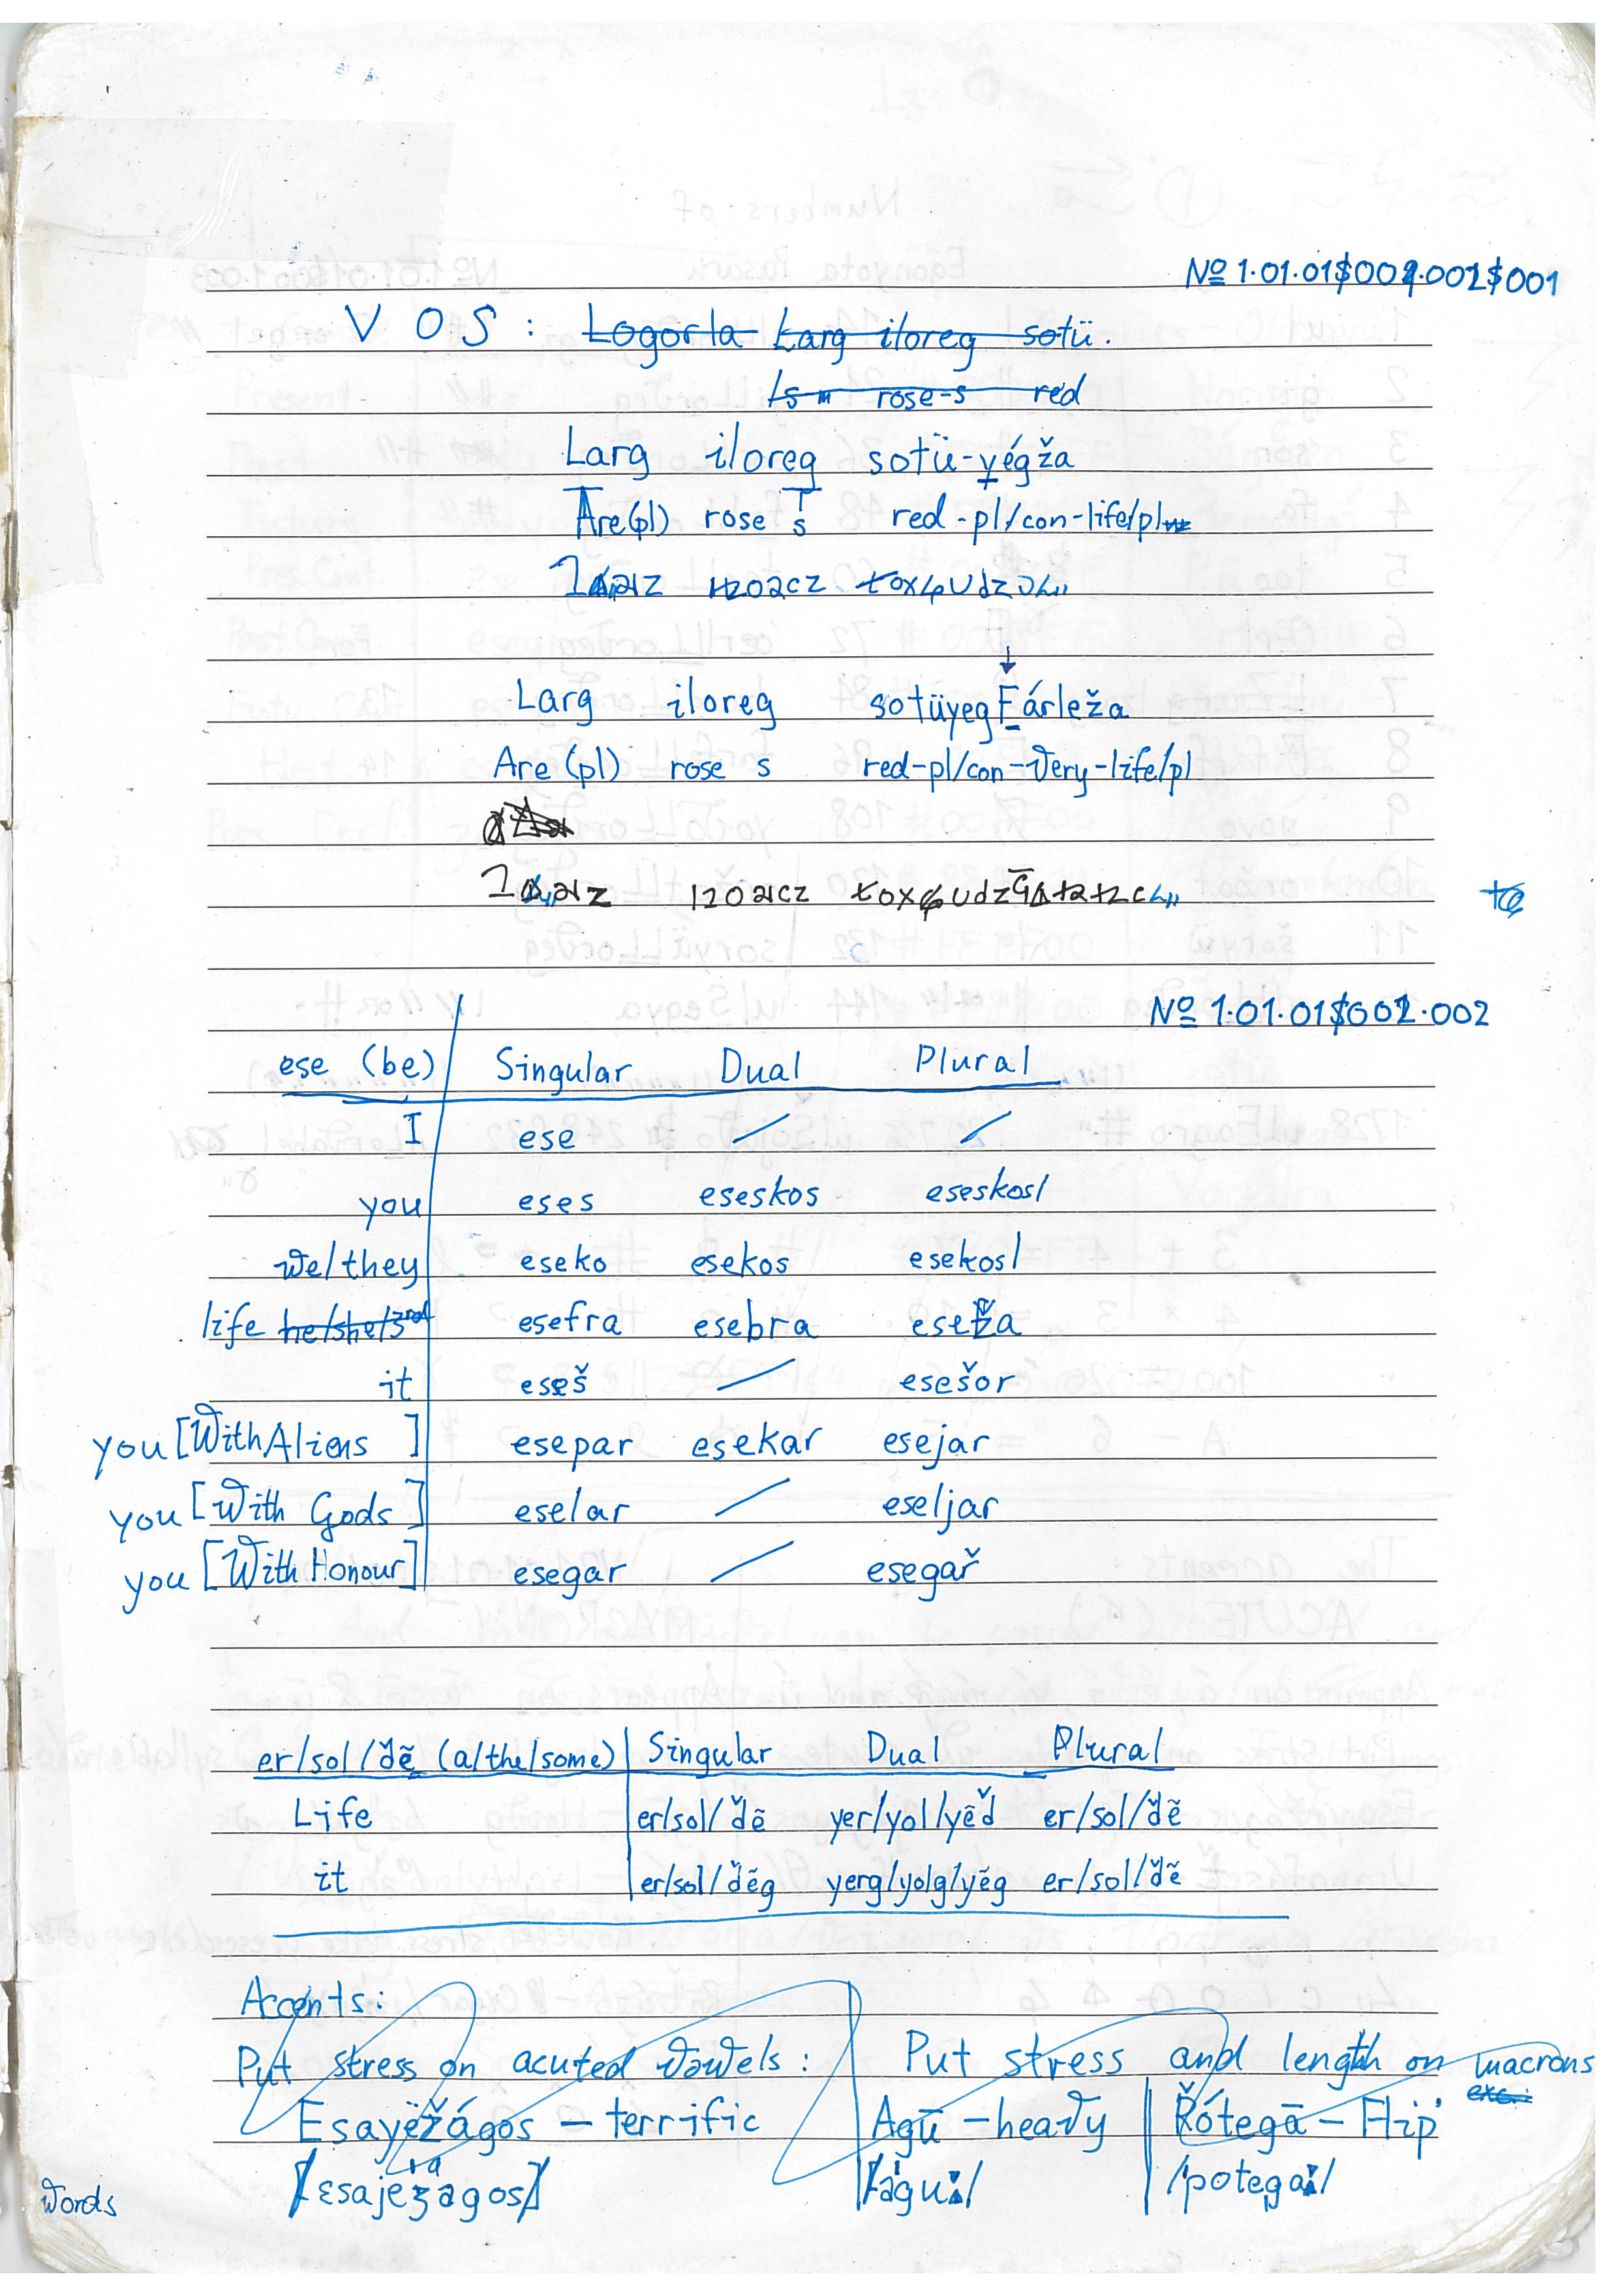 № 1.01.01$001.002$001
V O S : Logorla Larg iloreg sotü.
Is rose-s red
Larg iloreg sotü-yégža
Are(pl) rose s red-pl/con-life/pl
Larg iloreg sotüyegFárleža
Are (pl) rose s red-pl/con-Very-life/pl
№ 1.01.01$001.002
ese (be) Singular Dual Plural
I ese / /
you eses eseskos eseskosl
we/they eseko esekos esekosl
life he/she/3rd esefra esebra eseža
it eseš / esešor
you [With Aliens ] esepar esekar esejar
you [With Gods ] eselar / eseljar
you [With Honour] esegar / esegař
er/sol/ďē (a/the/some) Singular Dual Plural
Life er/sol/ďē yer/yol/yēď er/sol/ďē
it er/sol/ďēg yerg/yolg/yēg er/sol/ďē
Accents:
Put stress on acuted vowels : Put stress and length on macrons
exc.
Esayëžágos – terrific Agū – heavy Řótegā – Flip
Words